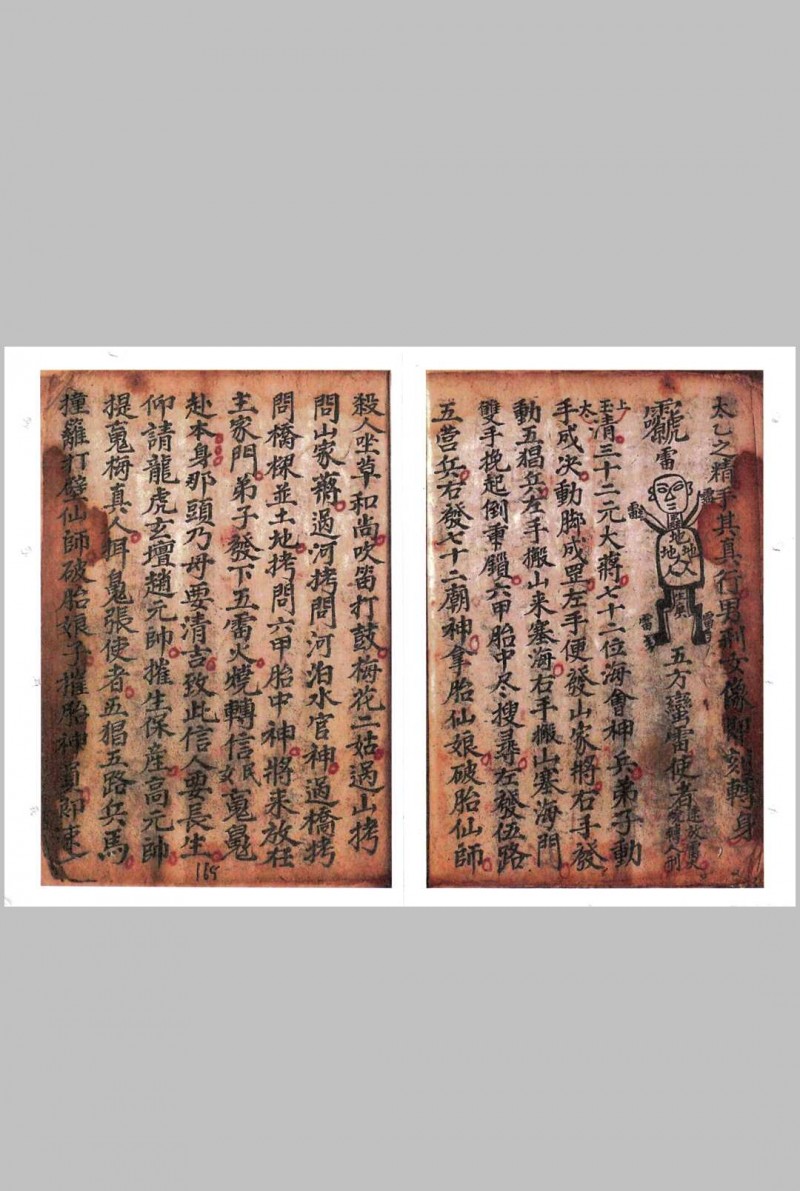 太乙之精手其真行男刑女像即刻轉身
雷
雷
雷
雷
雷
地地
地
人人
五方蠻雷使者
上玉太清三十二元大蔣七十二位海會神兵弟子動
手成决動脚成罡左手便發山家將右手發
動五猖兵左手搬山来塞海右手搬山塞海門
雙手挽起倒重鎖六甲胎中尽搜尋左發伍路
五营兵右發七十二廟神拿胎仙娘破胎仙師
殺人坐草和尚吹笛打鼓梅花二姑過山拷
問山家蔣過河拷問河泊水官神過橋拷
問橋樑並土地拷問六甲胎中神將来放在
主家門弟子發下五雷火燒轉信民女䰟䰟
赴本身那頭乃母要清吉致此信人要長生
仰請龍虎玄壇趙元帥摧生保產高元帥
提䰟梅真人押䰟張使者五猖五路兵馬
撞羅打壁仙師破胎娘子摧胎神員即速
168